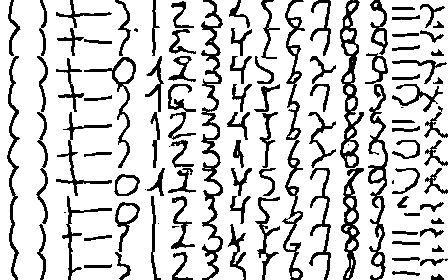 ( ) + - 1 2 3 4 5 6 7 8 9 =
( ) + - 1 2 3 4 5 6 7 8 9 =
( ) + - 0 1 2 3 4 5 6 7 8 9 =
( ) + - 1 2 3 4 5 6 7 8 9 x
( ) + - 1 2 3 4 5 6 7 8 9 = x
( ) + - 1 2 3 4 5 6 7 8 9 x
( ) + - 0 1 2 3 4 5 6 7 8 9 x
( ) + - 0 1 2 3 4 5 6 7 8 9 =
( ) + - 1 2 3 4 5 6 7 8 9 =
( ) + - 1 2 3 4 5 6 7 8 9 =